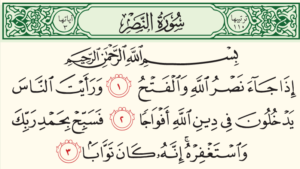 ترتيبها ١١٠ سُورَةُ النَّصْرِ آياتها ٣
بِسْمِ اللَّهِ الرَّحْمَٰنِ الرَّحِيمِ
إِذَا جَآءَ نَصْرُ اللَّهِ وَالْفَتْحُ ١ وَرَأَيْتَ النَّاسَ
يَدْخُلُونَ فِي دِينِ اللَّهِ أَفْوَاجًا ٢ فَسَبِّحْ بِحَمْدِ رَبِّكَ
وَاسْتَغْفِرْهُ ۚ إِنَّهُۥ كَانَ تَوَّابًۢا ٣